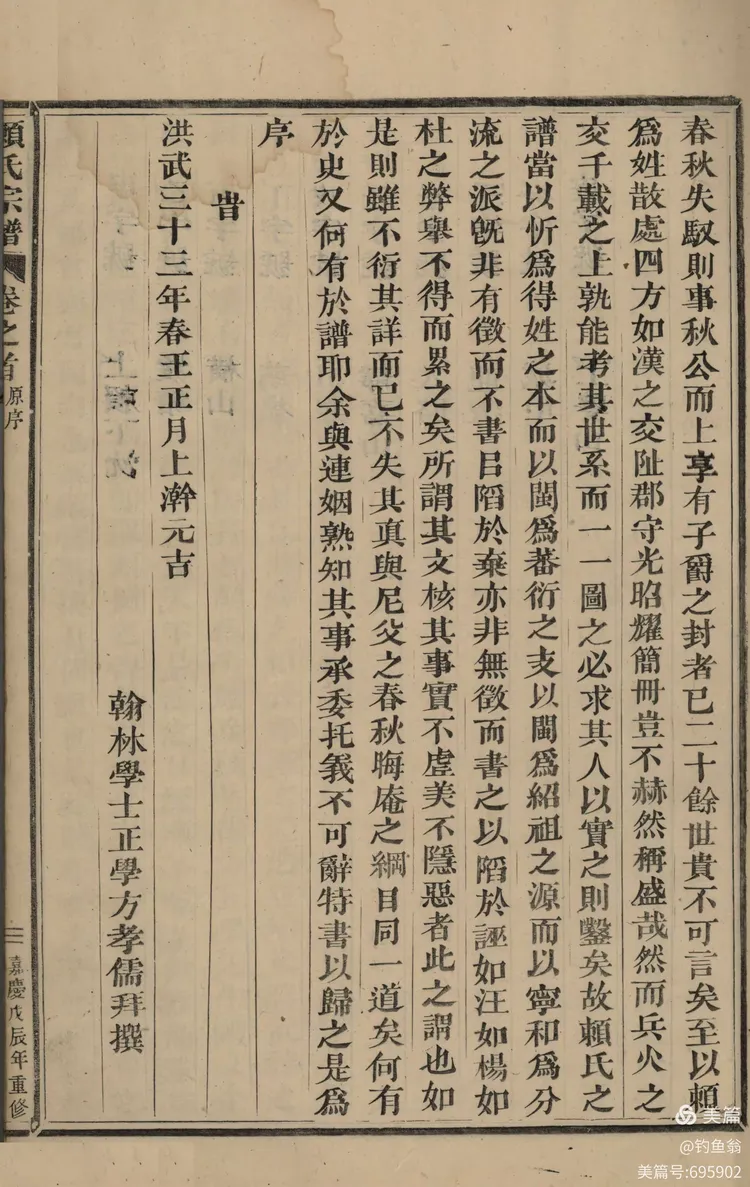 春秋失馭則事秋公而上享有子爵之封者已二十餘世貴不可言矣至以賴
爲姓散處四方如漢之交阯郡守光昭耀簡冊豈不赫然稱盛哉然而兵火之
交千載之上孰能考其世系而一一圖之必求其人以實之則鑿矣故賴氏之
譜當以忻爲得姓之本而以閩爲蕃衍之支以閩爲紹祖之源而以寧和爲分
流之派旣非有徵而不書自陷於棄亦非無徵而書之以陷於誣如汪如楊如
杜之弊舉不得而累之矣所謂其文核其事實不虛美不隱惡者此之謂也如
是則雖不衍其詳而已不失其眞與尼父之春秋晦庵之綱目同一道矣何有
於史又何有於譜耶余與連姻熟知其事承委托義不可辭特書以歸之是爲
序
旹
洪武三十三年春王正月上澣元吉
翰林學士正學方孝儒拜撰
賴氏宗譜 卷之首 原序 三 嘉慶戊辰年重修
美篇
@钓鱼翁
美篇号:695902